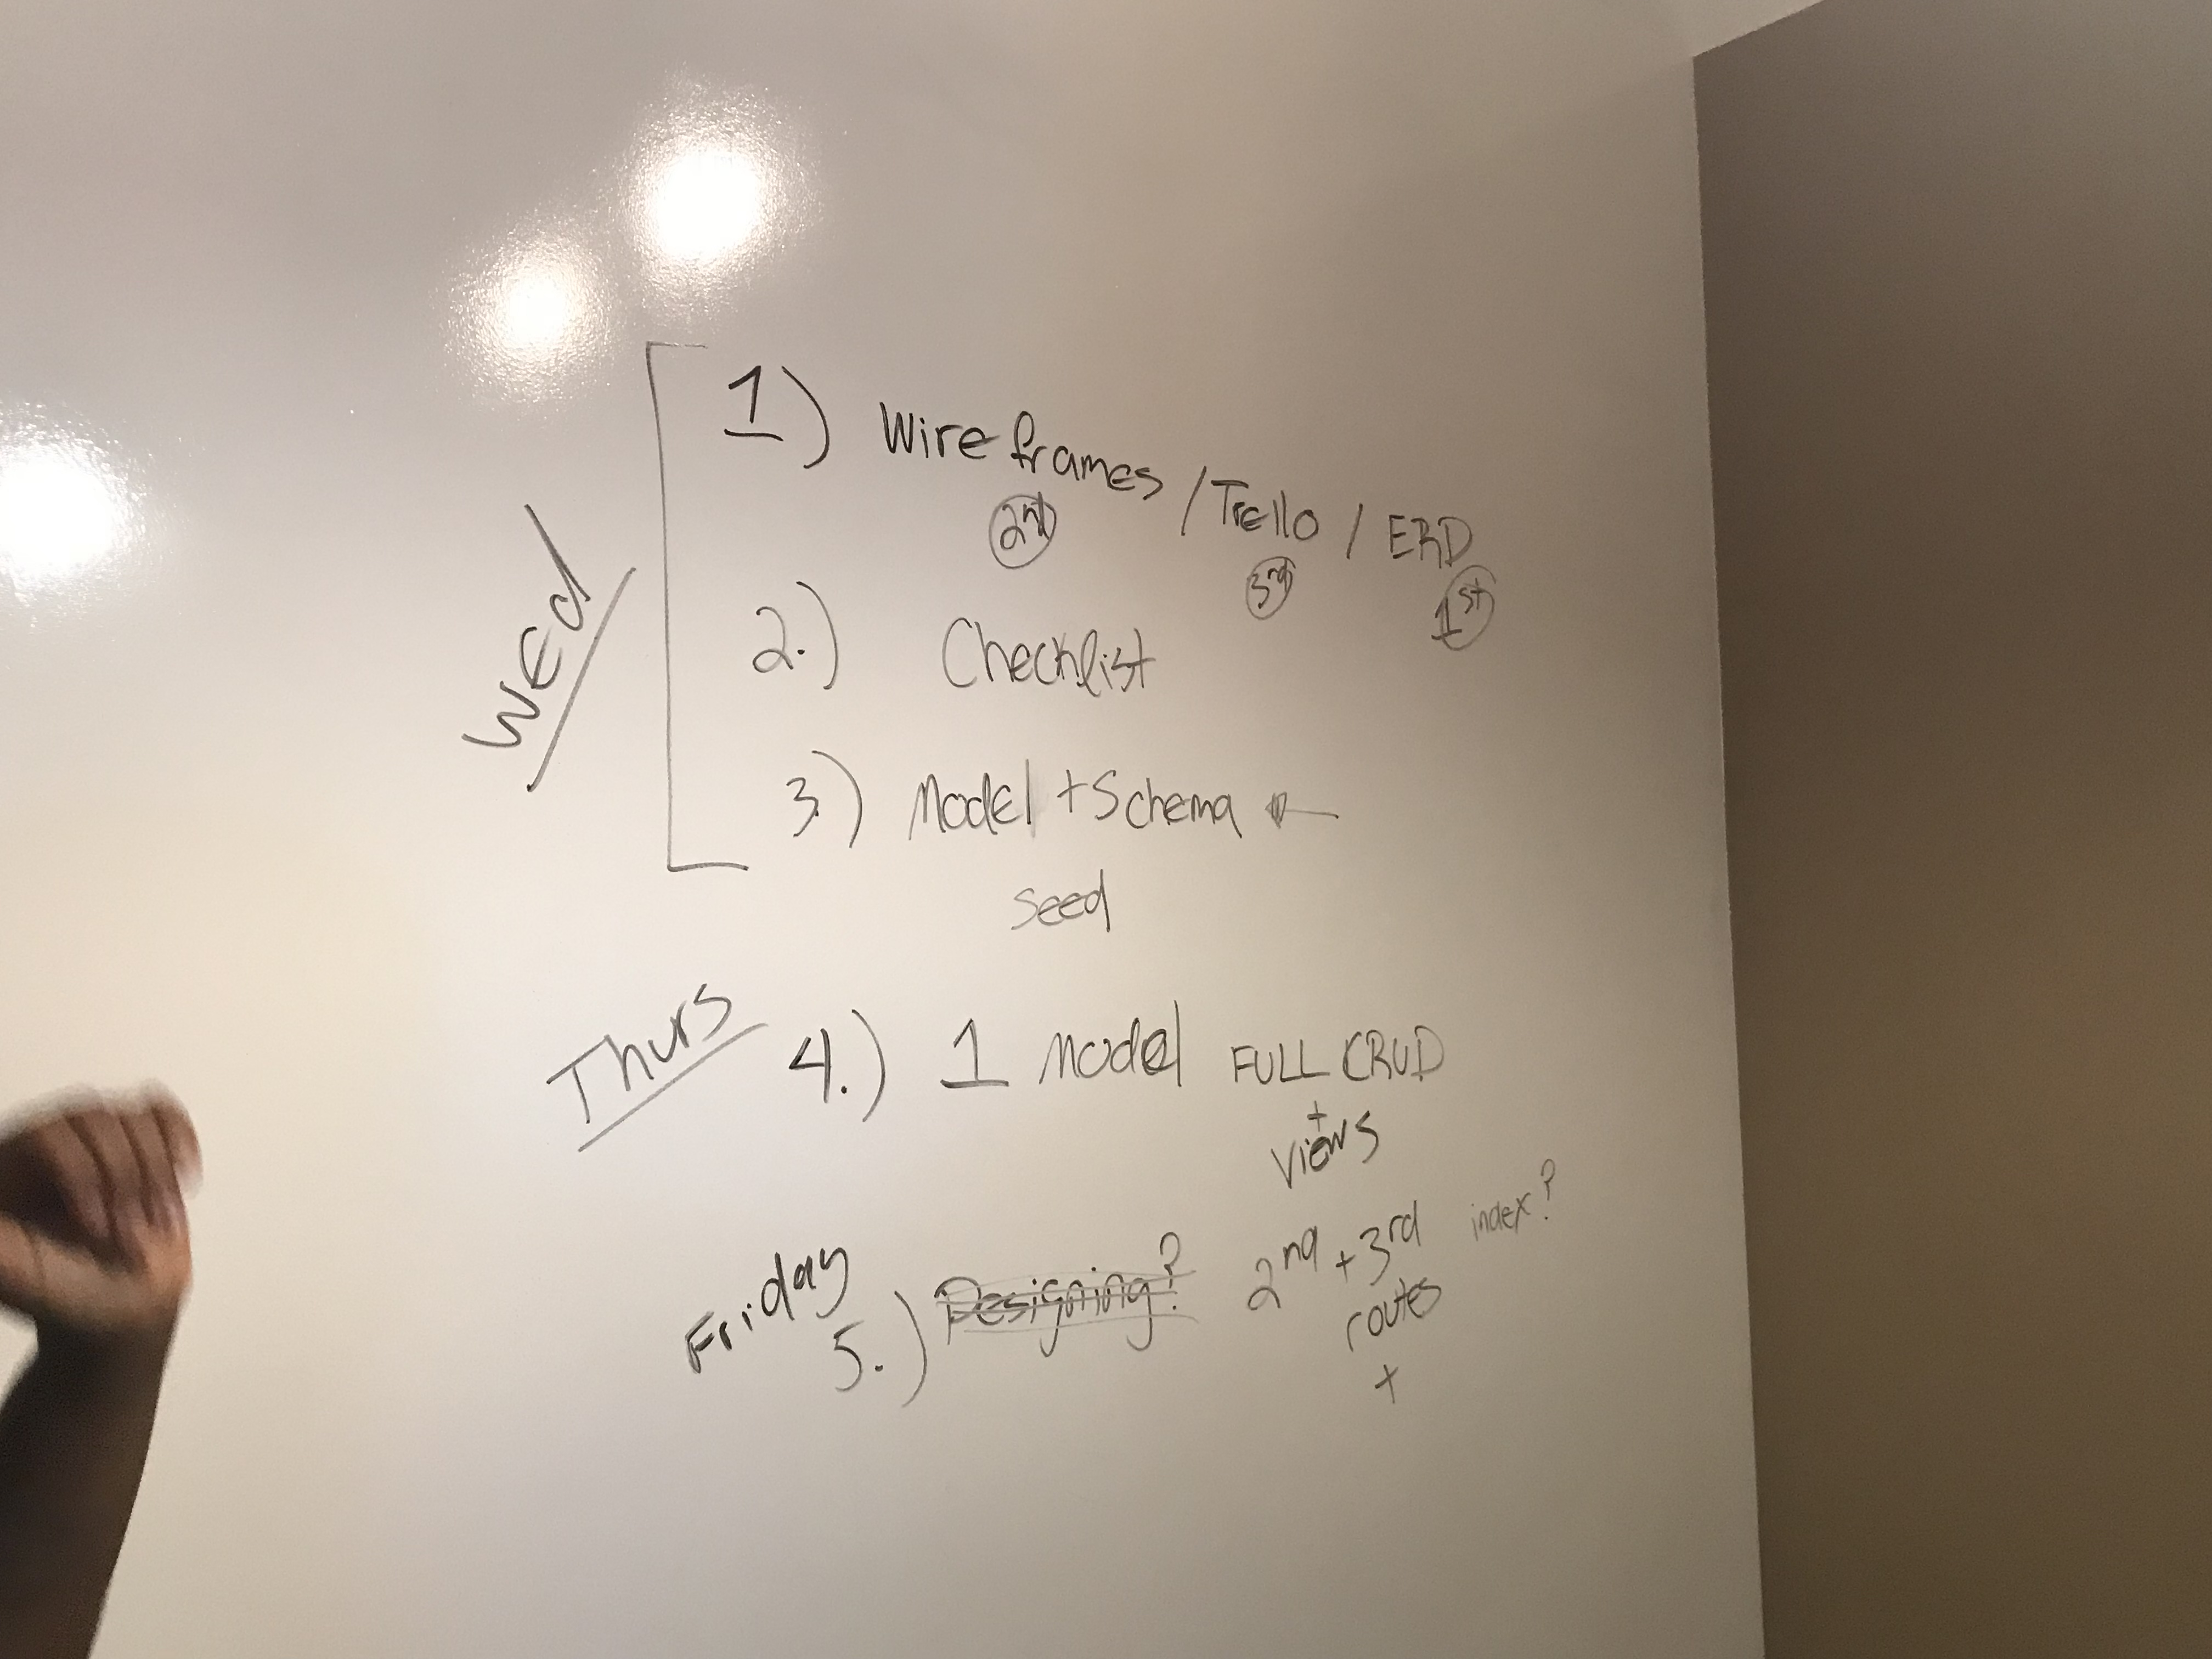 Wed
1) Wireframes / Trello / ERD
2nd 3rd 1st
2.) Checklist
3.) Model + Schema ←
seed
Thurs
4.) 1 Model FULL CRUD
+
views
Friday
5.) Designing? 2nd + 3rd index?
routes
+